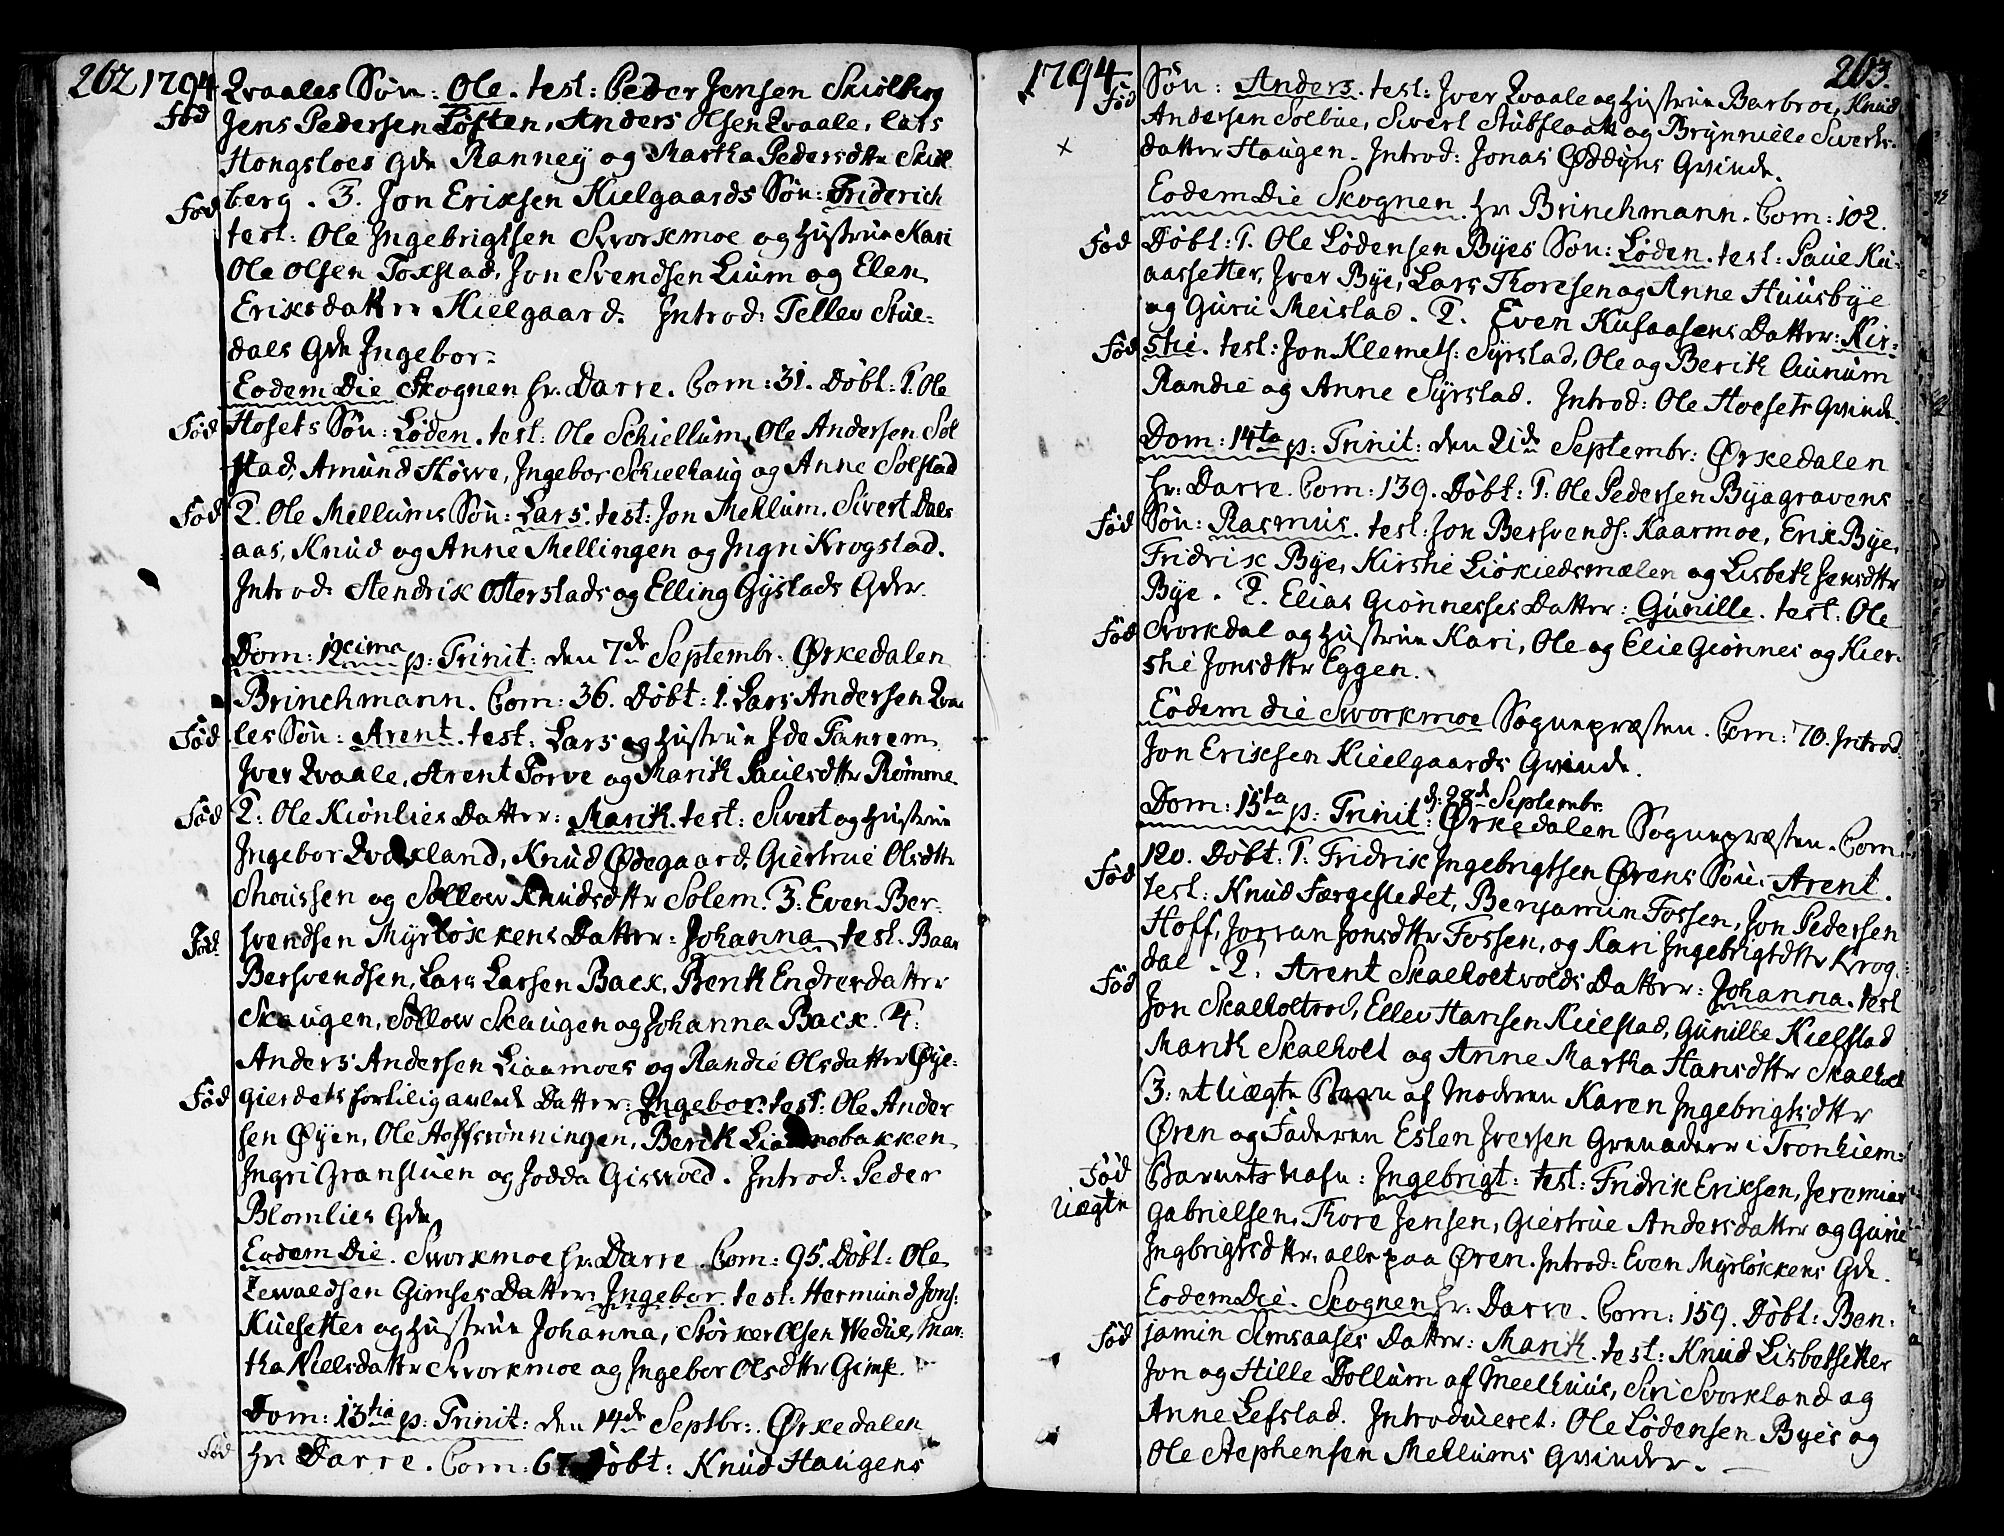 202 1794
Qvaales Søn: Ole. test: Peder Jensen Skiølberg
Fød
Jens Pedersen Løften, Anders Olsen Qvaale, Lars
Hongsloes Gde Ranney og Martha Pedersdttr Skiøl
berg. 3. Jon Eriksen Kielgaards Søn: Friderich
Fød
test: Ole Ingebrigtsen Svorkmoe og Hustrue Kari
Ole Olsen Foxstad, Jon Svendsen Lium og Elen
Eriksdatter Kielgaard. Introd: Tellev Stue-
dals Gde Ingebor=
Eodem Die Skognen hr. Darre. Com: 31. Døbt: 1. Ole
Fød
Hosets Søn: Løden. test: Ole Schiellum, Ole Andersen Sol
stad, Amund Howe, Ingebor Schielhaug og Anne Solstad
Fød
2. Ole Mellums Søn: Lars. test: Jon Mellum. Sivert Dals
aas, Knud og Anne Mellingen og Ingri Krogstad.
Introd: Hendrik Osterstads og Elling Gystads Gder.
Dom: 12cima p: Trinit: den 7de Septembr: Ørkedalen
Brinchmann. Com: 36. Døbt: 1. Lars Andersen Qvaa
Fød
les Søn: Arent. test: Lars og Hustrue Ide Fanrem
Iver Qvaale, Arent Torve og Marith Paulsdttr Rømme
Fød
2. Ole Kionlies Datter: Marith. test: Sivert og Hustrue
Ingebor Kvaaland, Knud Ødegaard, Giertrue Olsdttr
Snoussen og Sollow Knudsdttr Solem. 3: Even Ber-
Fød
svendsen Myrløkkens Datter: Johanna. test. Baar
Bersvendsen, Lars Larsen Back, Berith Endresdatter
Skaugen, Sollow Skaugen og Johanna Back. 4:
Anders Andersen Liaamoes og Randie Olsdatter Øye-
Fød
gierdets for tilig avlede Datter: Ingebor. test: Ole Ander
sen Øyen, Ole Hoffsrønningen, Berith Liaamobakken
Ingri Granstuen og Jodda Giswold. Introd: Peder
Blomlies Gde
Eodem Die. Svorkmoe hr: Darre. Com: 95. Døbt: Ole
Zewaldsen Gimses Datter: Ingebor. test: Hermund Jons:
Kuesetter og Hustrue Johanna, Størker Olsen Wedue, Mar-
tha Nielsdattr Svorkmoe og Ingebor Olsdttr Gimse.
Dom: 13tia p: Trinit: den 14de Septbr: Ørkedalen
Fød
hr. Darre. Com: 67 Døbt: Knud Haugens
1794
203.
Fød
Søn: Anders. test: Iver Qvaale og Hustrue Barbroe, Knud
Andersen Solbue, Sivert Stubflaatt og Brynnille Siverts-
×
datter Haugen. Introd: Jonas Oddyns Qvinde.
Eodem Die Skognen. hr Brinchmann. Com: 102.
Fød
Døbt: 1. Ole Lødensen Byes Søn: Løden. test: Paul Ku-
aassetter, Iver Bye, Lars Thoresen og Anne Huusbye
og Guru Meistad. 2. Even Kusaasens Datter: Kir-
Fød
stie. test: Jon Klemets: Syrstad, Ole og Berith Aunum
Randie og Anne Syrstad. Introd: Ole Hosets Qvinde
Dom: 14ta p: Trinit: den 21de Septembr: Ørkedalen
hr: Darre. Com: 139. Døbt: 1. Ole Pedersen Byagravens
Fød
Søn: Rasmus. test: Jon Bersvends: Kaarmoe, Erik Bye,
Fridrik Bye, Kirstie Liøkiedsmælen og Lisbeth Jensdttr
Bye. 2. Elias Giønneses Datter: Gunille. test: Ole
Fød
Svorkdal og Hustrue Kari, Ole og Elie Giønnes og Kier-
stie Jonsdttr Eggen.
Eodem die Svorkmoe Sognepræsten. Com: 70. Introd
Jon Eriksen Kielgaards Qvinde.
Dom: 15ta p: Trinit: d: 28de Septembr. Ørkedalen Sognepræsten. Com
Fød
120. Døbt: 1. Fridrik Ingebrigtsen Ørens Søn: Arent.
test: Knud Færgestedet, Benjamin Fossen, Jon Pedersen
Hoff, Jorran Jonsdttr Fossen, og Kari Ingebrigtdttr Krog-
Fød
dal. 2. Arent Skalholtvolds Datter: Johanna. test
Jon Skalholtvod, Ellev Hansen Kielstad, Gunille Kielstad
Marith Skalholt og Anne Martha Hansdttr Skalholt
3: et Uægte Barn af Moderen Karen Ingebrigtsdttr
Øren og Faderen Esten Iversen Grenadeer i Tronhiem:
Fød
Uægte
Barnets Nafn: Ingebrigt: test: Fridrik Eriksen, Jeremias
Gabrielsen, Thore Jensen, Giertrue Andersdatter og Gurie
Ingbrigtsdttr, alle paa Øren. Introd: Even Myrløkkens Gde.
Eodem Die. Skognen hr: Darre. Com: 159. Døbt: Ben-
Fød
jamin Amsaases Datter: Marith. test: Knud Lisbetsetter
Jon og Hille Dollum af Meelhuus, Siri Svorkland og
Anne Lefstad. Introduceret: Ole Lødensen Byes og
Ole Stephensen Mellums Qvinder.